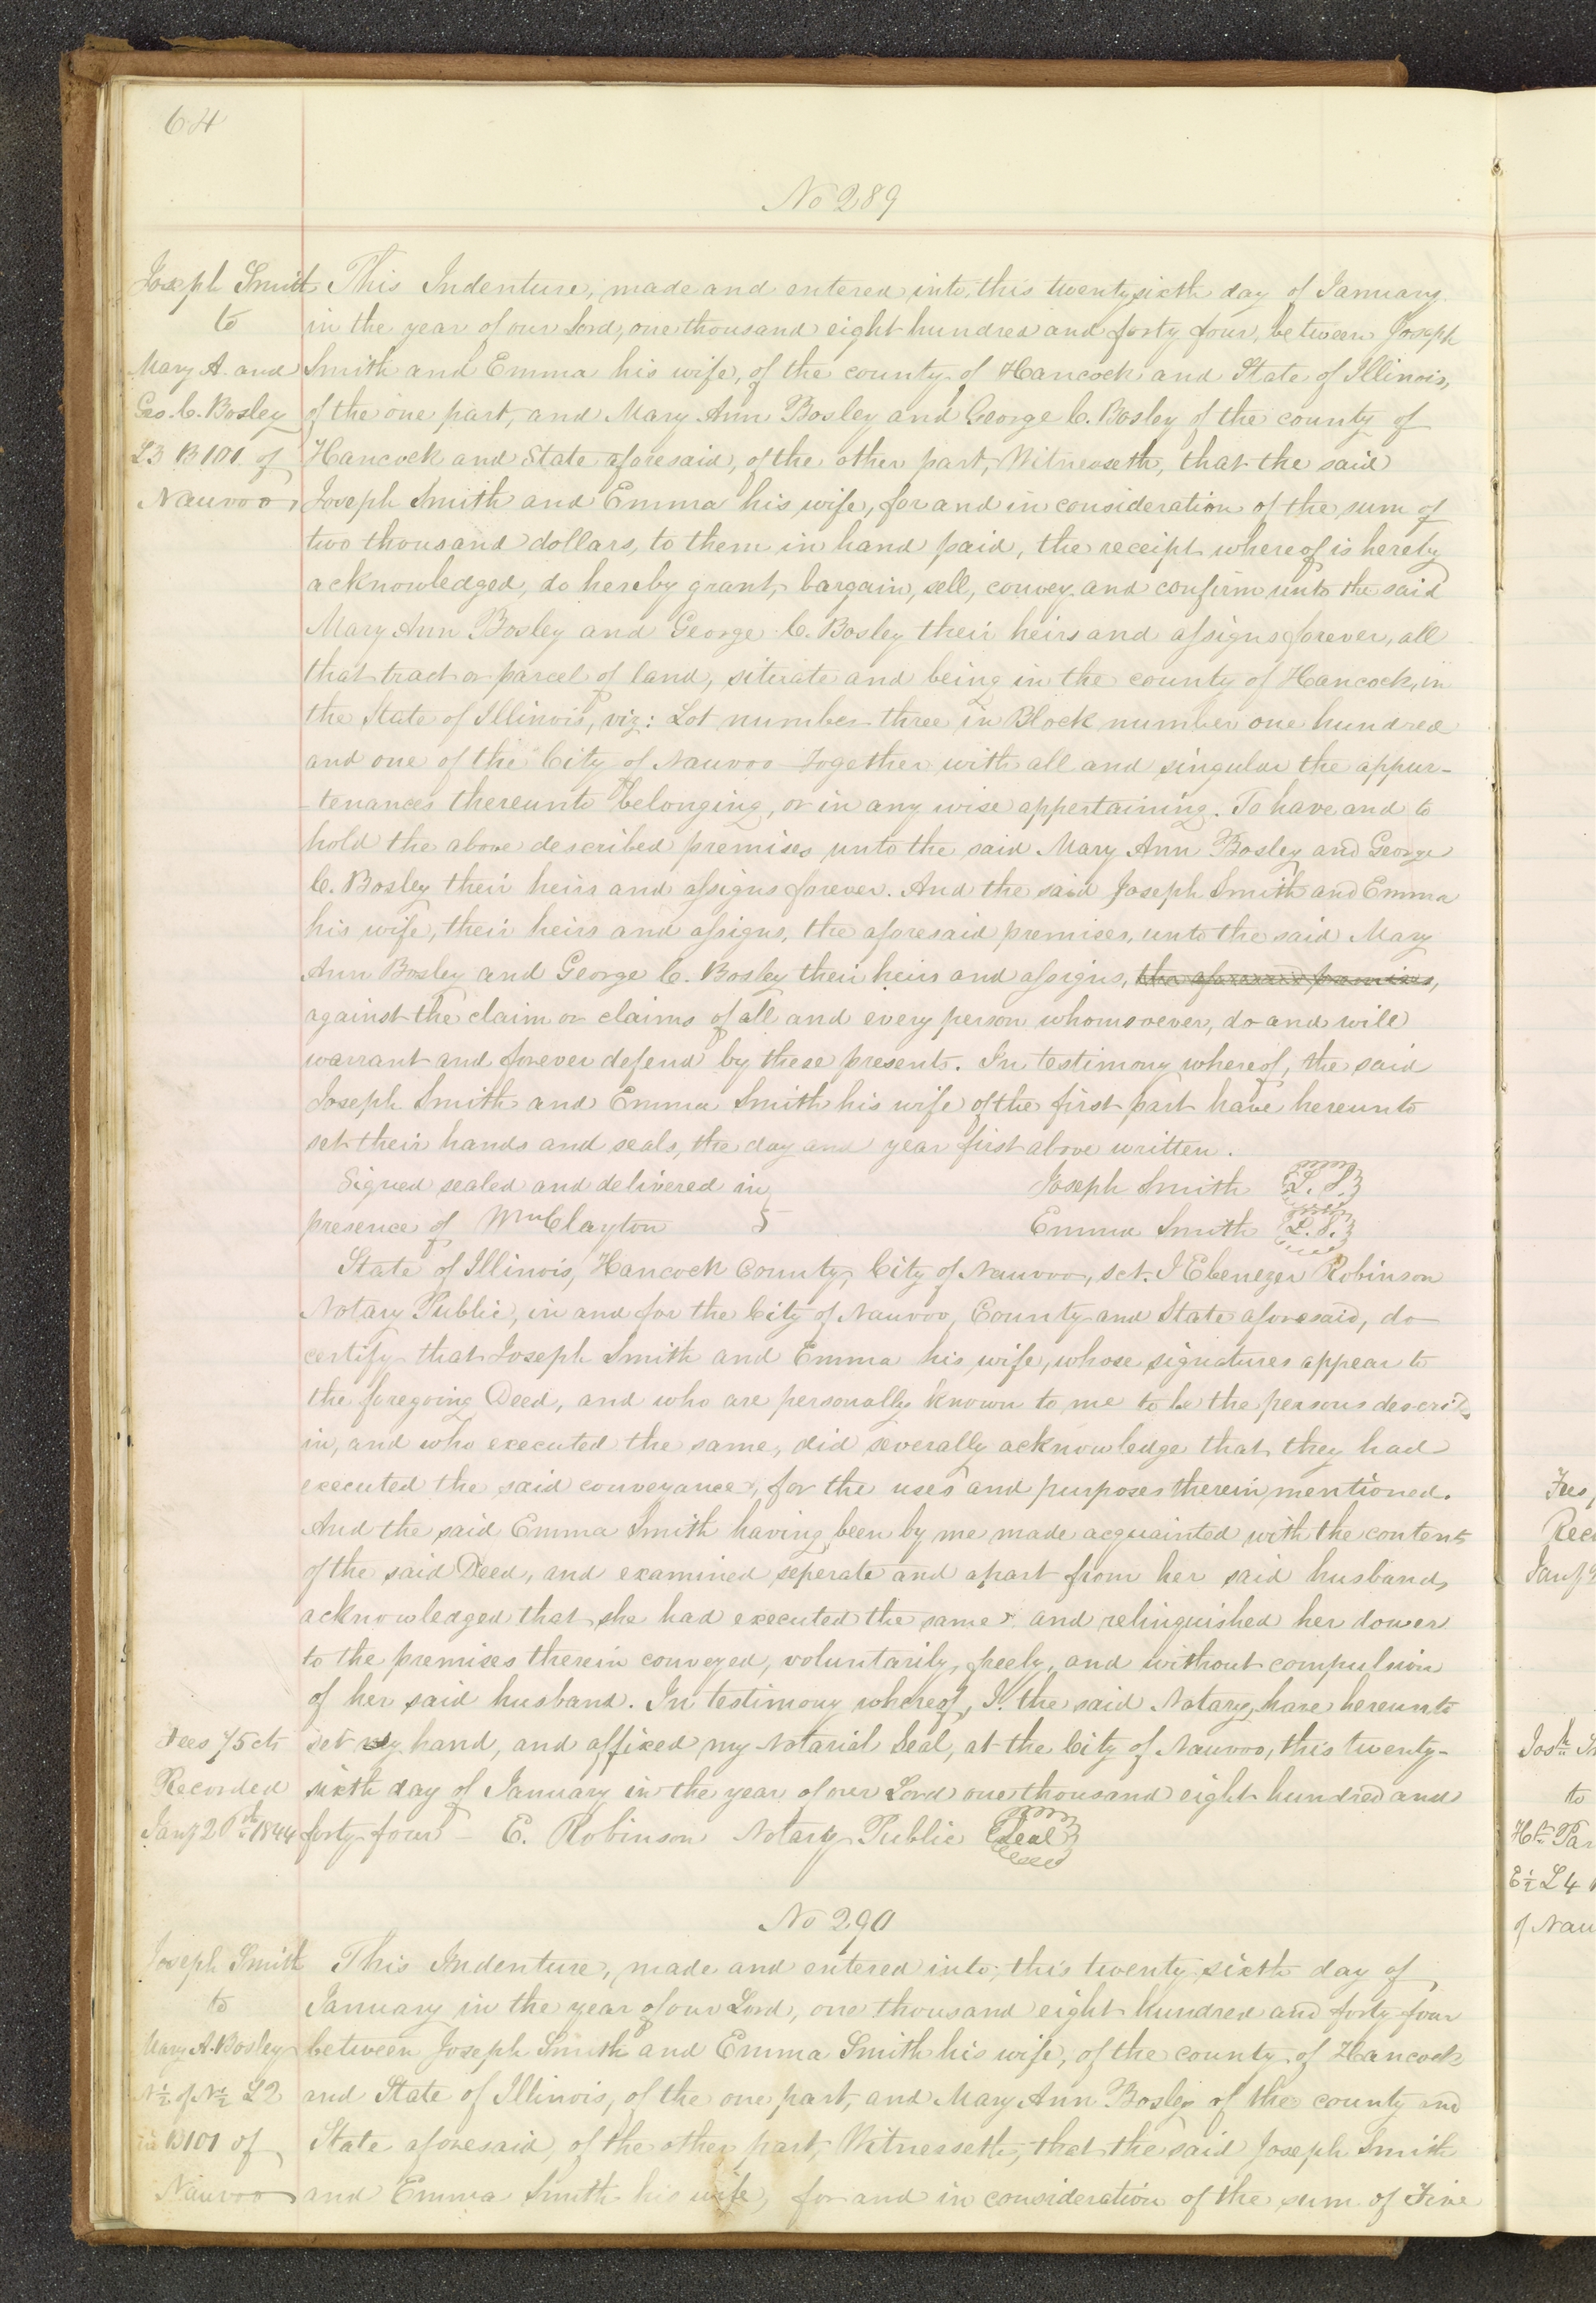 64
No 289
Joseph Smith
to
Mary A. and
Geo. C. Bosley
L3 B101 of
Nauvoo
This Indenture, made and entered into, this twenty sixth day of January
in the year of our Lord, one thousand eight hundred and forty four, between Joseph
Smith and Emma his wife, of the county of Hancock and State of Illinois,
of the one part, and Mary Ann Bosley and George C. Bosley of the county of
Hancock and State aforesaid, of the other part, Witnesseth, that the said
Joseph Smith and Emma his wife, for and in consideration of the sum of
two thousand dollars, to them in hand paid, the receipt whereof is hereby
acknowledged, do hereby grant, bargain, sell, convey and confirm unto the said
Mary Ann Bosley and George C. Bosley their heirs and assigns forever, all
that tract or parcel of land, situate and being in the county of Hancock, in
the State of Illinois, viz: Lot number three in Block number one hundred
and one of the City of Nauvoo together with all and singular the appur-
-tenances thereunto belonging, or in any wise appertaining. To have and to
hold the above described premises unto the said Mary Ann Bosley and George
C. Bosley their heirs and assigns forever. And the said Joseph Smith and Emma
his wife, their heirs and assigns, the aforesaid premises, unto the said Mary
Ann Bosley and George C. Bosley their heirs and assigns, the aforesaid premises,
against the claim or claims of all and every person whomsoever, do and will
warrant and forever defend by these presents. In testimony whereof, the said
Joseph Smith and Emma Smith his wife of the first part have hereunto
set their hands and seals, the day and year first above written.
Signed sealed and delivered in Joseph Smith L.S.
presence of Wm Clayton Emma Smith L.S.
State of Illinois, Hancock County, City of Nauvoo, sct. I Ebenezer Robinson
Notary Public, in and for the City of Nauvoo, County and State aforesaid, do
certify that Joseph Smith and Emma his wife, whose signatures appear to
the foregoing Deed, and who are personally known to me to be the persons describ
in, and who executed the same, did severally acknowledge that they had
executed the said conveyance, for the uses and purposes therein mentioned.
And the said Emma Smith having been by me made acquainted with the contents
of the said Deed, and examined seperate and apart from her said husband,
acknowledged that she had executed the same and relinquished her dower
to the premises therein conveyed, voluntarily, freely, and without compulsion
of her said husband. In testimony whereof, I. the said Notary, have hereunto
set my hand, and affixed my Notarial Seal, at the City of Nauvoo, this twenty-
sixth day of January in the year of our Lord one thousand eight hundred and
forty four - E. Robinson Notary Public Seal
Fees 75 cts
Recorded
Jany 26th 1844
No 290
Joseph Smith
to
Mary A. Bosley
N½ of N½ L2
in B101 of
Nauvoo
This Indenture, made and entered into, this twenty sixth day of
January in the year of our Lord, one thousand eight hundred and forty four
between Joseph Smith and Emma Smith his wife, of the county of Hancock
and State of Illinois, of the one part, and Mary Ann Bosley of the county and
State aforesaid, of the other part, Witnesseth, that the said Joseph Smith
and Emma Smith his wife, for and in consideration of the sum of Five
Fees,
Rec
Jany
Josh
to
Hk Par
E½ L4
of Nau